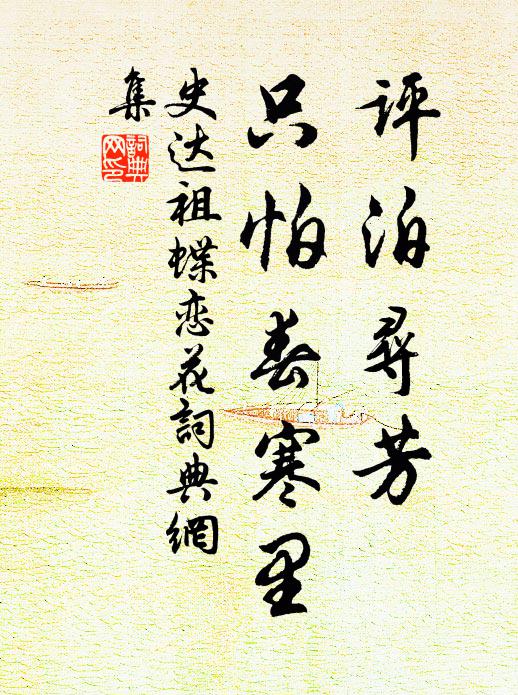 评泊寻芳
只怕春寒里
史达祖蝶恋花詞典網
集
詞典
网印